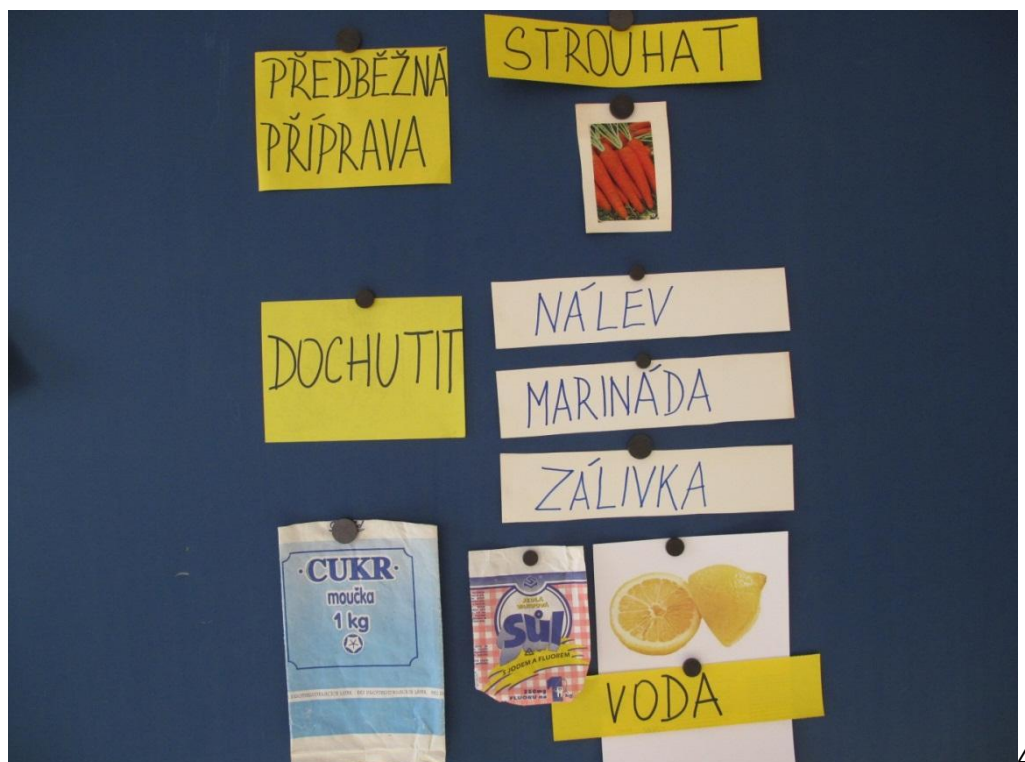 PŘEDBĚŽNÁ
PŘÍPRAVA
STROUHAT
DOCHUTIT
NÁLEV
MARINÁDA
ZÁLIVKA
·CUKR·
moučka
1 kg
JEDLÁ
VAKUOVÁ
Sůl
S JODEM A FLUOREM
250mg
FLUORU na 1 kg
VODA